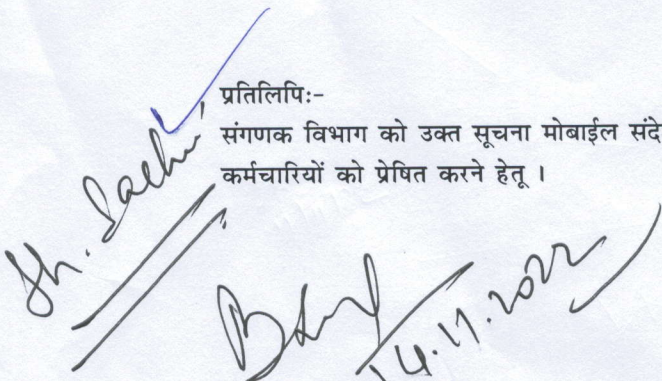 प्रतिलिपिः-
संगणक विभाग को उक्त सूचना मोबाईल संदे
कर्मचारियों को प्रेषित करने हेतू ।
Sh.
14.11.2022